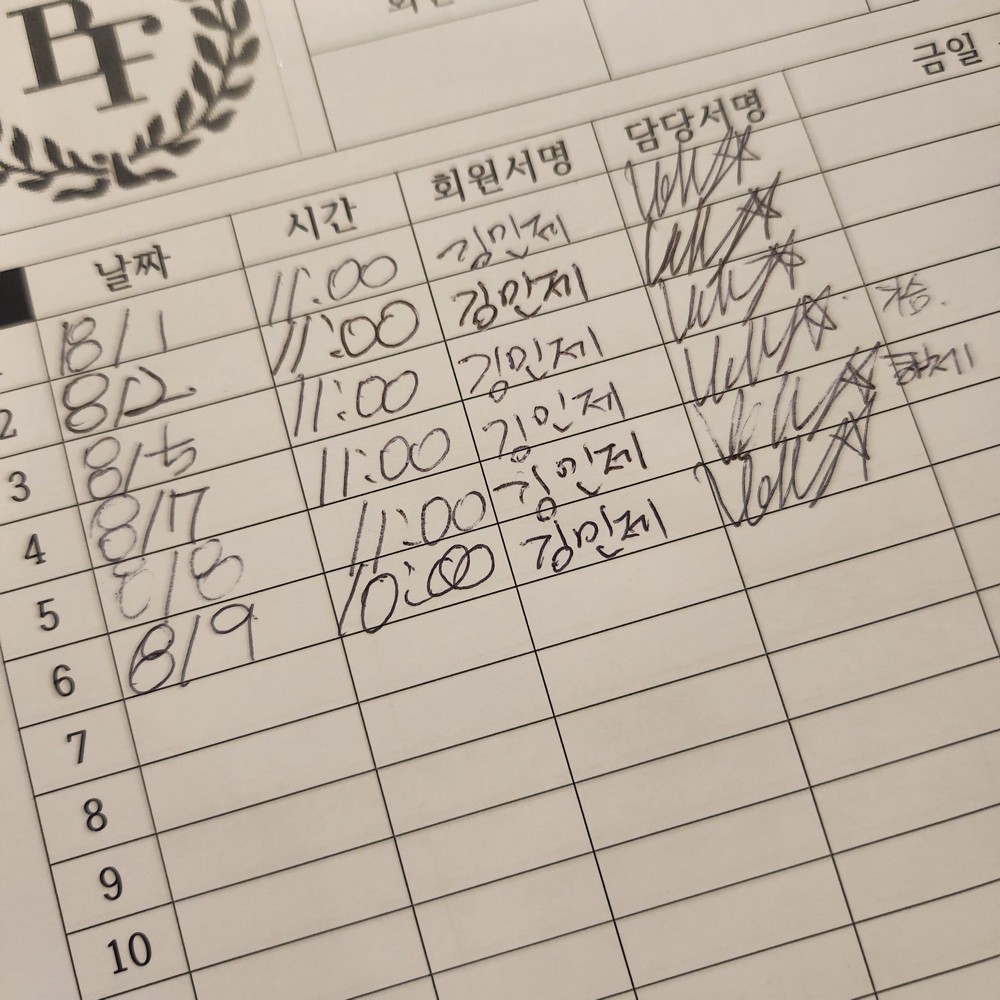 BF
회원
날짜 시간 회원서명 담당서명 금일
8/1 11:00 김민제
2 8/2 11:00 김민제
3 8/5 11:00 김민제
4 8/7 11:00 김민제 가슴.
5 8/8 11:00 김민제 하체
6 8/9 10:00 김민제
7
8
9
10